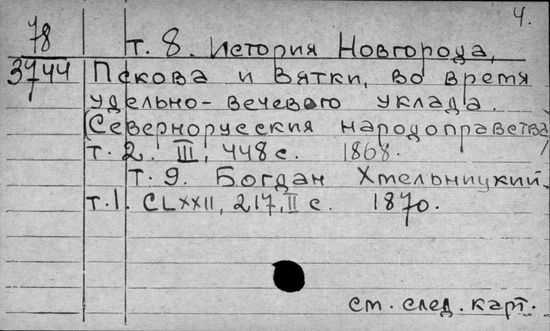 4.
78
3744
т. 8. История Новгорода,
Пскова и Вятки, во время
удельно-вечевого уклада.
(Севернорусския народоправства)
т. 2. III, 448 с. 1868.
т. 9. Богдан Хмельницкий.
т. 1. CLXXII, 217, II с. 1870.
см. след. карт.